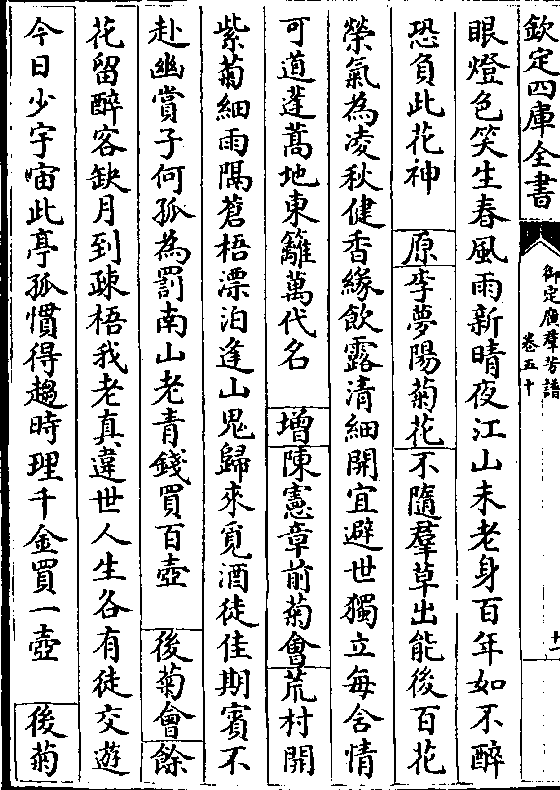 欽定四庫全書
御定廣羣芳譜
卷五十
十一
眼燈色笑生春風雨新晴夜江山未老身百年如不醉
恐負此花神 原李夢陽菊花不隨羣草出能後百花
榮氣為凌秋健香緣飲露清細開宜避世獨立每含情
可道蓬蒿地東籬萬代名 增陳憲章前菊會荒村開
紫菊細雨隔蒼梧漂泊逢山鬼歸來覓酒徒佳期賓不
赴幽賞子何孤為罰南山老青錢買百壺 後菊會餘
花留醉客缺月到疎梧我老真違世人生各有徒交遊
今日少宇宙此亭孤慣得趨時理千金買一壺 後菊